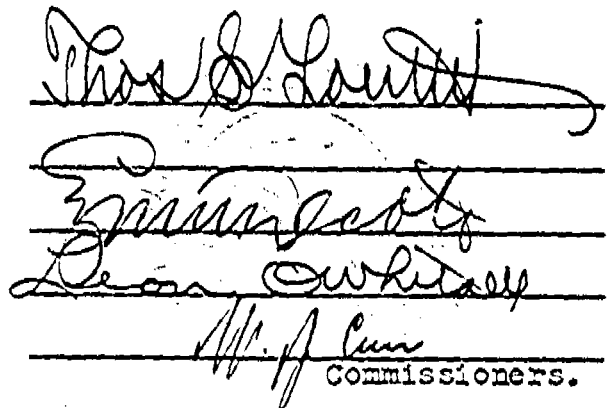 Thos S Louttit
Leon O Whitsell
W. J. Carr
Commissioners.